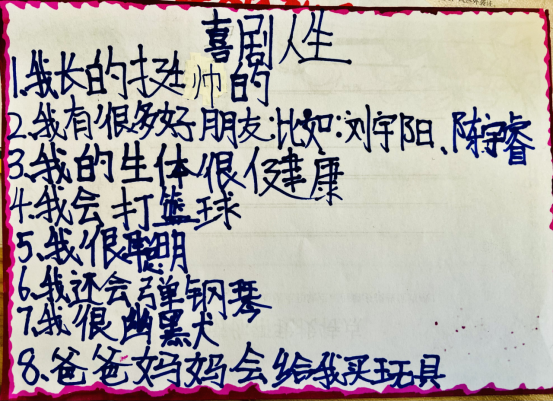 喜剧人生
1.我长的挺帅的
2.我有很多好朋友:比如:刘宇阳、陈宇睿
3.我的生体很健康
4.我会打篮球
5.我很聪明
6.我还会弹钢琴
7.我很幽黑犬
8.爸爸妈妈会给我买玩具